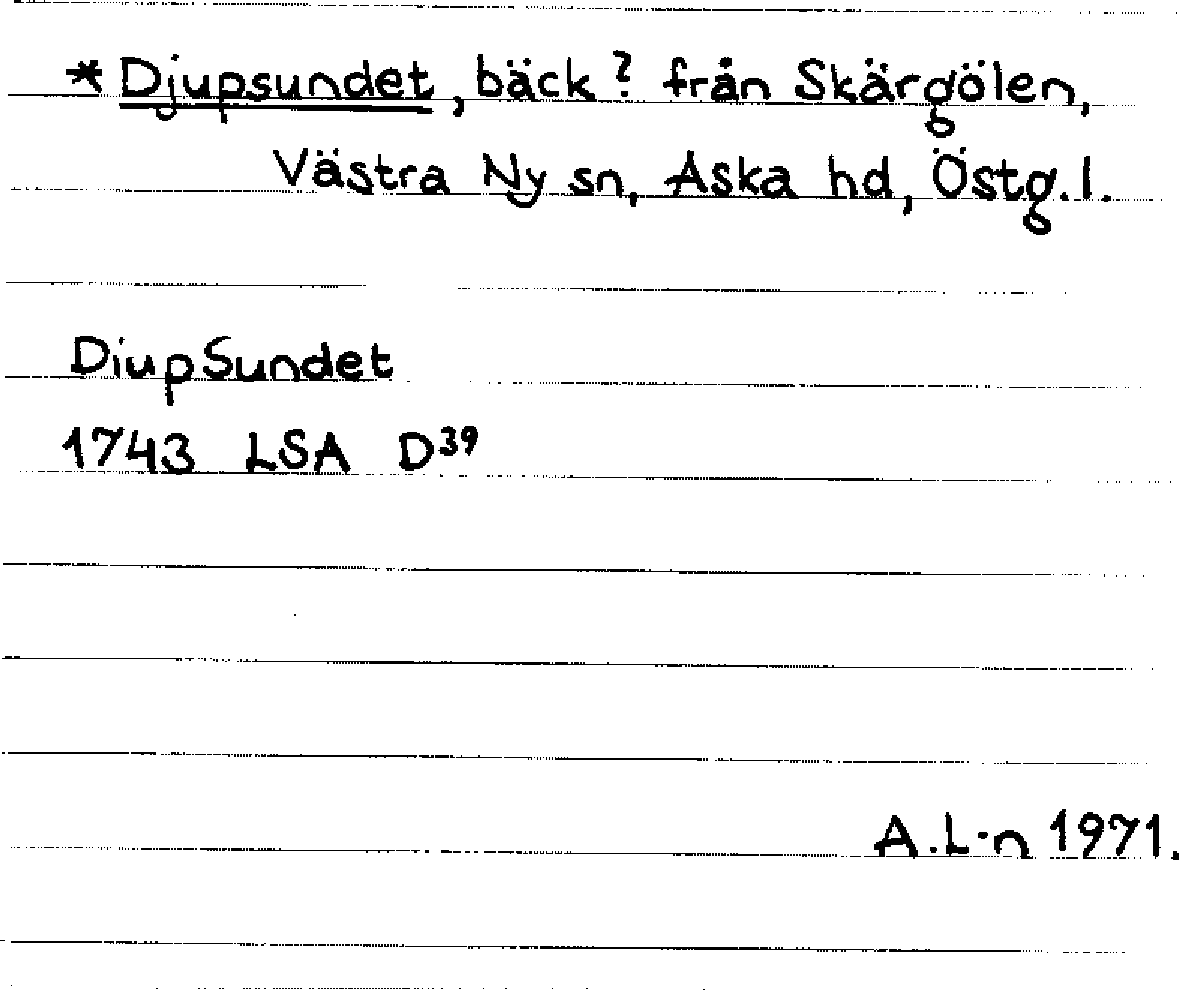 * Djupsundet, bäck? från Skärgölen,
Västra Ny sn, Aska hd, Östg.l.
DiupSundet
1743 LSA D³⁹
A.L-n 1971.